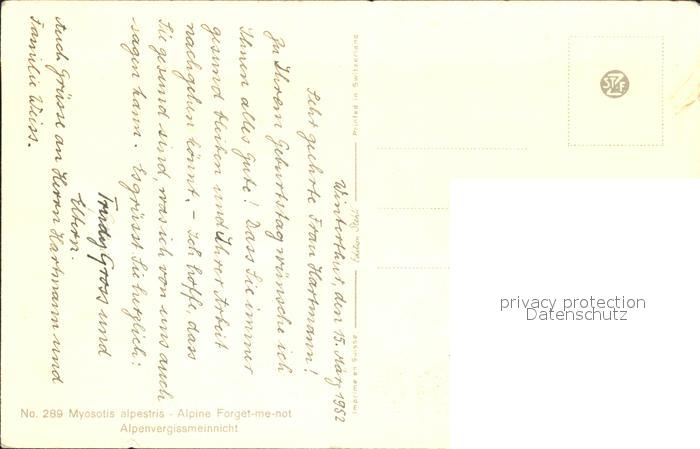 Winterthur, den 15. März 1982
Sehr geehrte Frau Hartmann!
Zu Ihrem Geburtstag wünsche ich
Ihnen alles Gute! Dass Sie immer
gesund bleiben und Ihrer Arbeit
nachgehen könnt. – Ich hoffe, dass
Sie gesund sind, was ich von uns auch
sagen kann. Es grüsst Sie herzlich:
Trudy Gross und
Eltern.
Auch Grüsse an Herrn Hartmann und
Familie Weiss.
Imprimé en Suisse
Printed in Switzerland
No. 289 Myosotis alpestris - Alpine Forget-me-not
Alpenvergissmeinnicht
privacy protection
Datenschutz